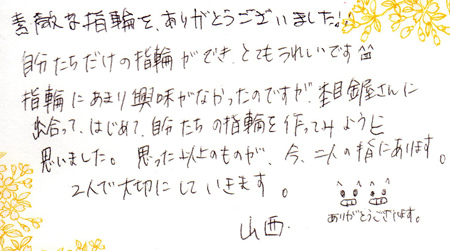 素敵な指輪を、ありがとうございました!!
自分たちだけの指輪ができ、とてもうれしいです
指輪にあまり興味がなかったのですが、杢目金屋さんに
出会って、はじめて、自分たちの指輪を作ってみようと
思いました。思った以上のものが、今、二人の指にあります。
2人で大切にしていきます。
ありがとうございます。
山西.